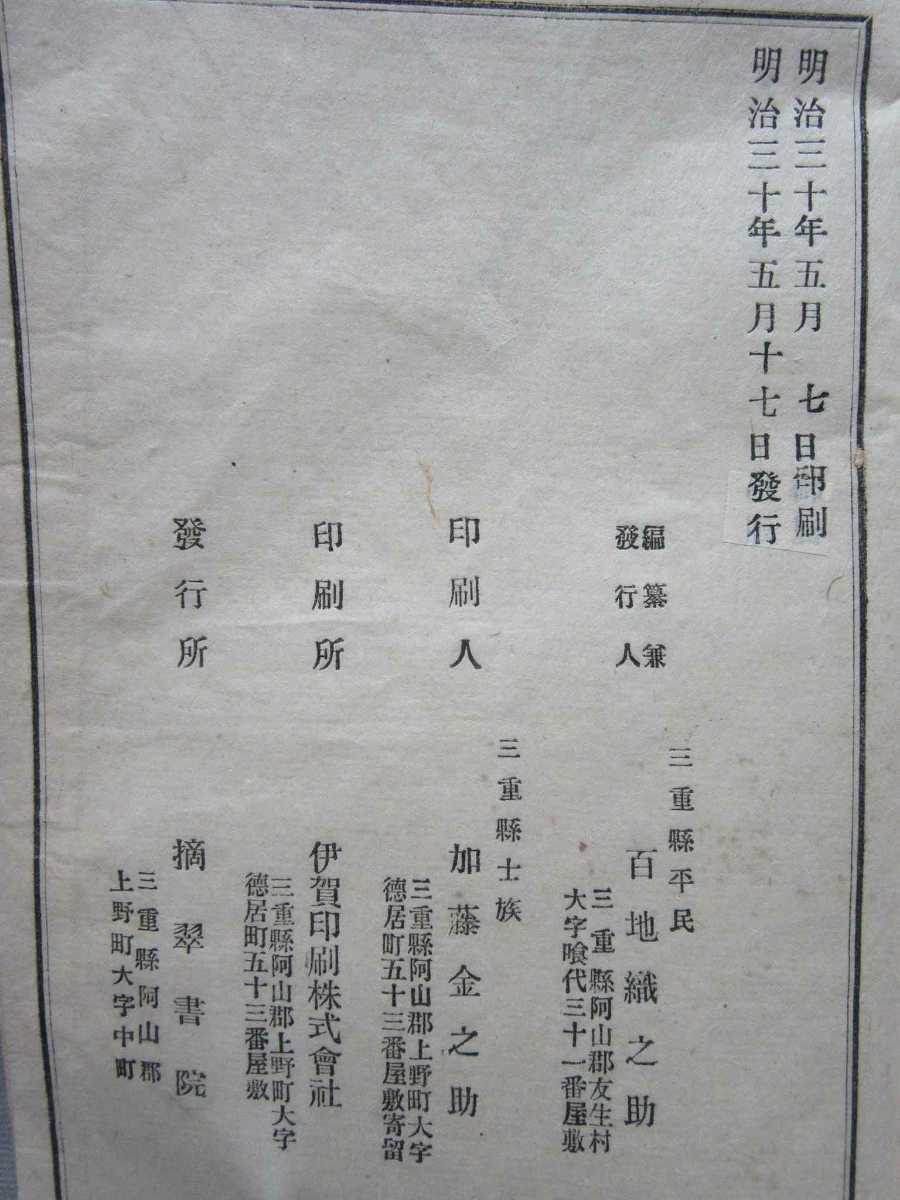 明治三十年五月　七日印刷
明治三十年五月十七日發行
編纂兼
發行人
三重縣平民
百地織之助
三重縣阿山郡友生村
大字喰代三十一番屋敷
印刷人
三重縣士族
加藤金之助
三重縣阿山郡上野町大字
德居町五十三番屋敷寄留
印刷所
伊賀印刷株式會社
三重縣阿山郡上野町大字
德居町五十三番屋敷
發行所
摘翠書院
三重縣阿山郡
上野町大字中町